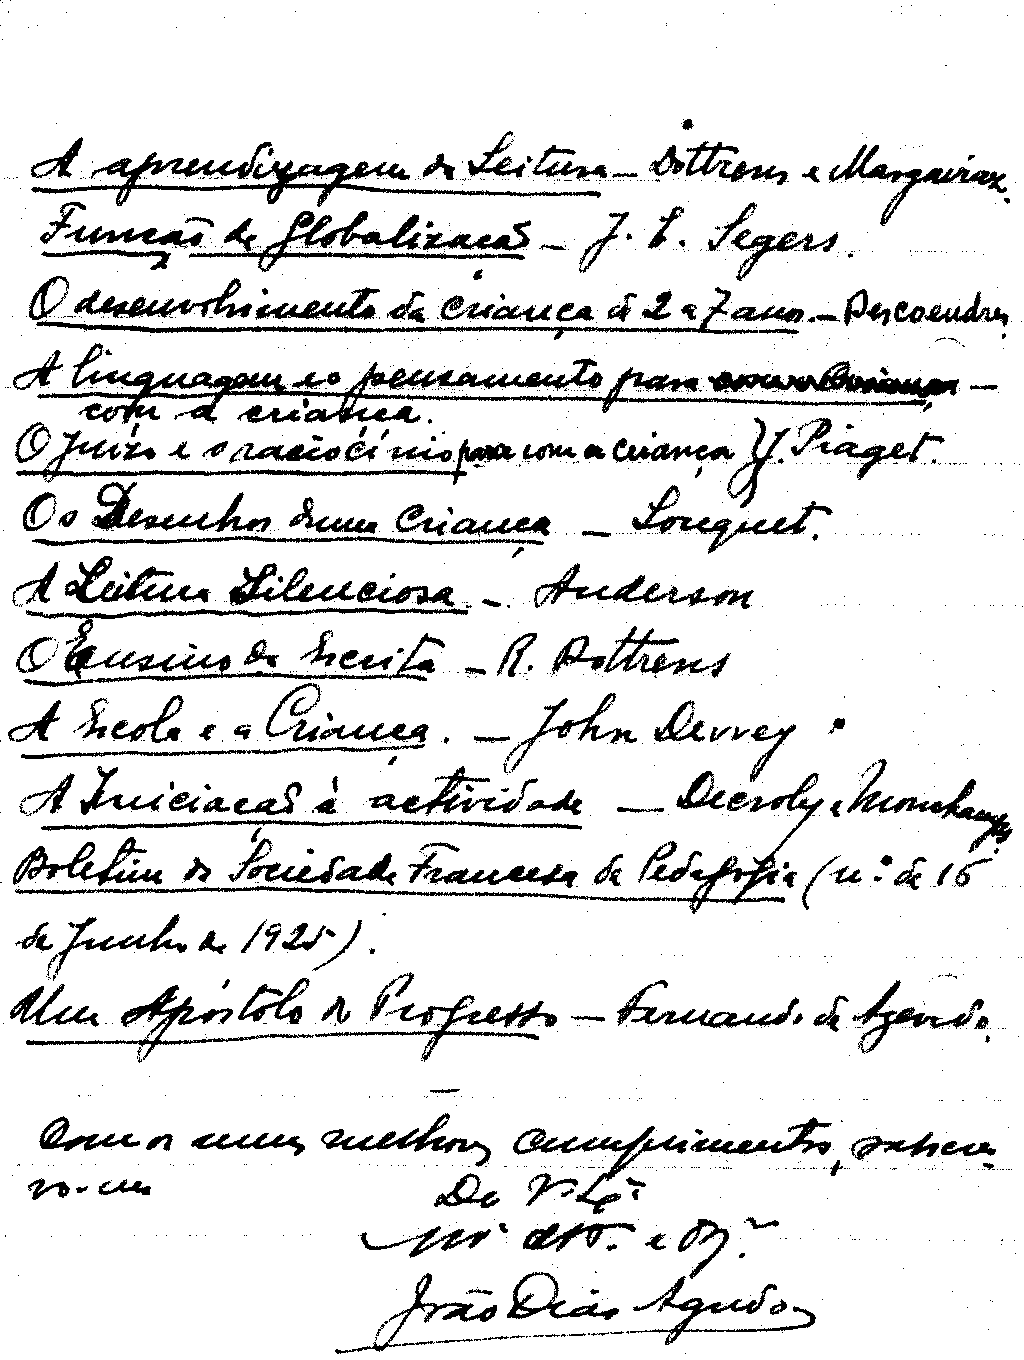 A aprendizagem da Leitura – Dottrens e Margairaz.
Função de Globalização – J. E. Segers.
O desenvolvimento da criança de 2 a 7 anos. – Descoeudres
A linguagem e o pensamento para –
com a criança.
O Juízo e o raciocínio para com a criança } J. Piaget.
Os Desenhos duma Criança – Louquet.
A Leitura Silenciosa – Anderson
O Ensino da Escrita – R. Dottrens
A Escola e a Criança. – John Dewey
A Iniciação à actividade – Decroly e Monchamps
Boletim da Sociedade Francesa de Pedagogia (n.º de 16
de Junho de 1925).
Um Apóstolo do Progresso – Fernando de Azevedo.
Com os meus melhores cumprimentos, subscre-
vo-me
De V. Ex.ª
Mº attº. e Obº.
João Dias Agudo